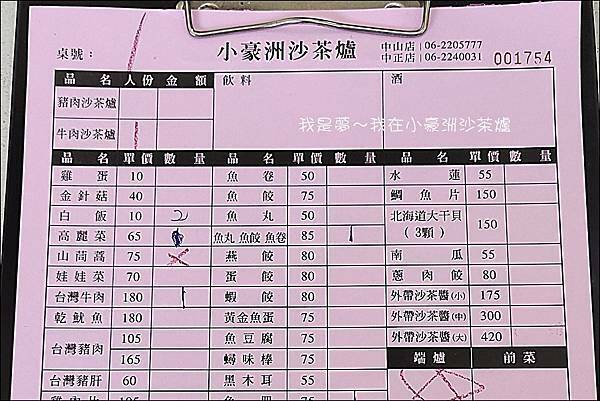 小豪洲沙茶爐
中山店 | 06-2205777
中正店 | 06-2240031
001754
桌號：
品名 人份 金額 飲料 酒
豬肉沙茶爐
牛肉沙茶爐
我是夢～我在小豪洲沙茶爐
品名 單價 數量 品名 單價 數量 品名 單價 數量
雞蛋 10 魚卷 50 水蓮 55
金針菇 40 魚餃 75 鯛魚片 150
白飯 10 2 魚丸 50 北海道大干貝（3顆） 150
高麗菜 65 魚丸 魚餃 魚卷 85 1
山茼蒿 75 燕餃 80 南瓜 55
娃娃菜 70 蛋餃 80 蔥肉餃 80
台灣牛肉 180 1 蝦餃 80 外帶沙茶醬(小) 175
乾魷魚 180 黃金魚蛋 75 外帶沙茶醬(中) 300
台灣豬肉 105 魚豆腐 75 外帶沙茶醬(大) 420
165 蟳味棒 75 端爐 前菜
台灣豬肝 60 黑木耳 55